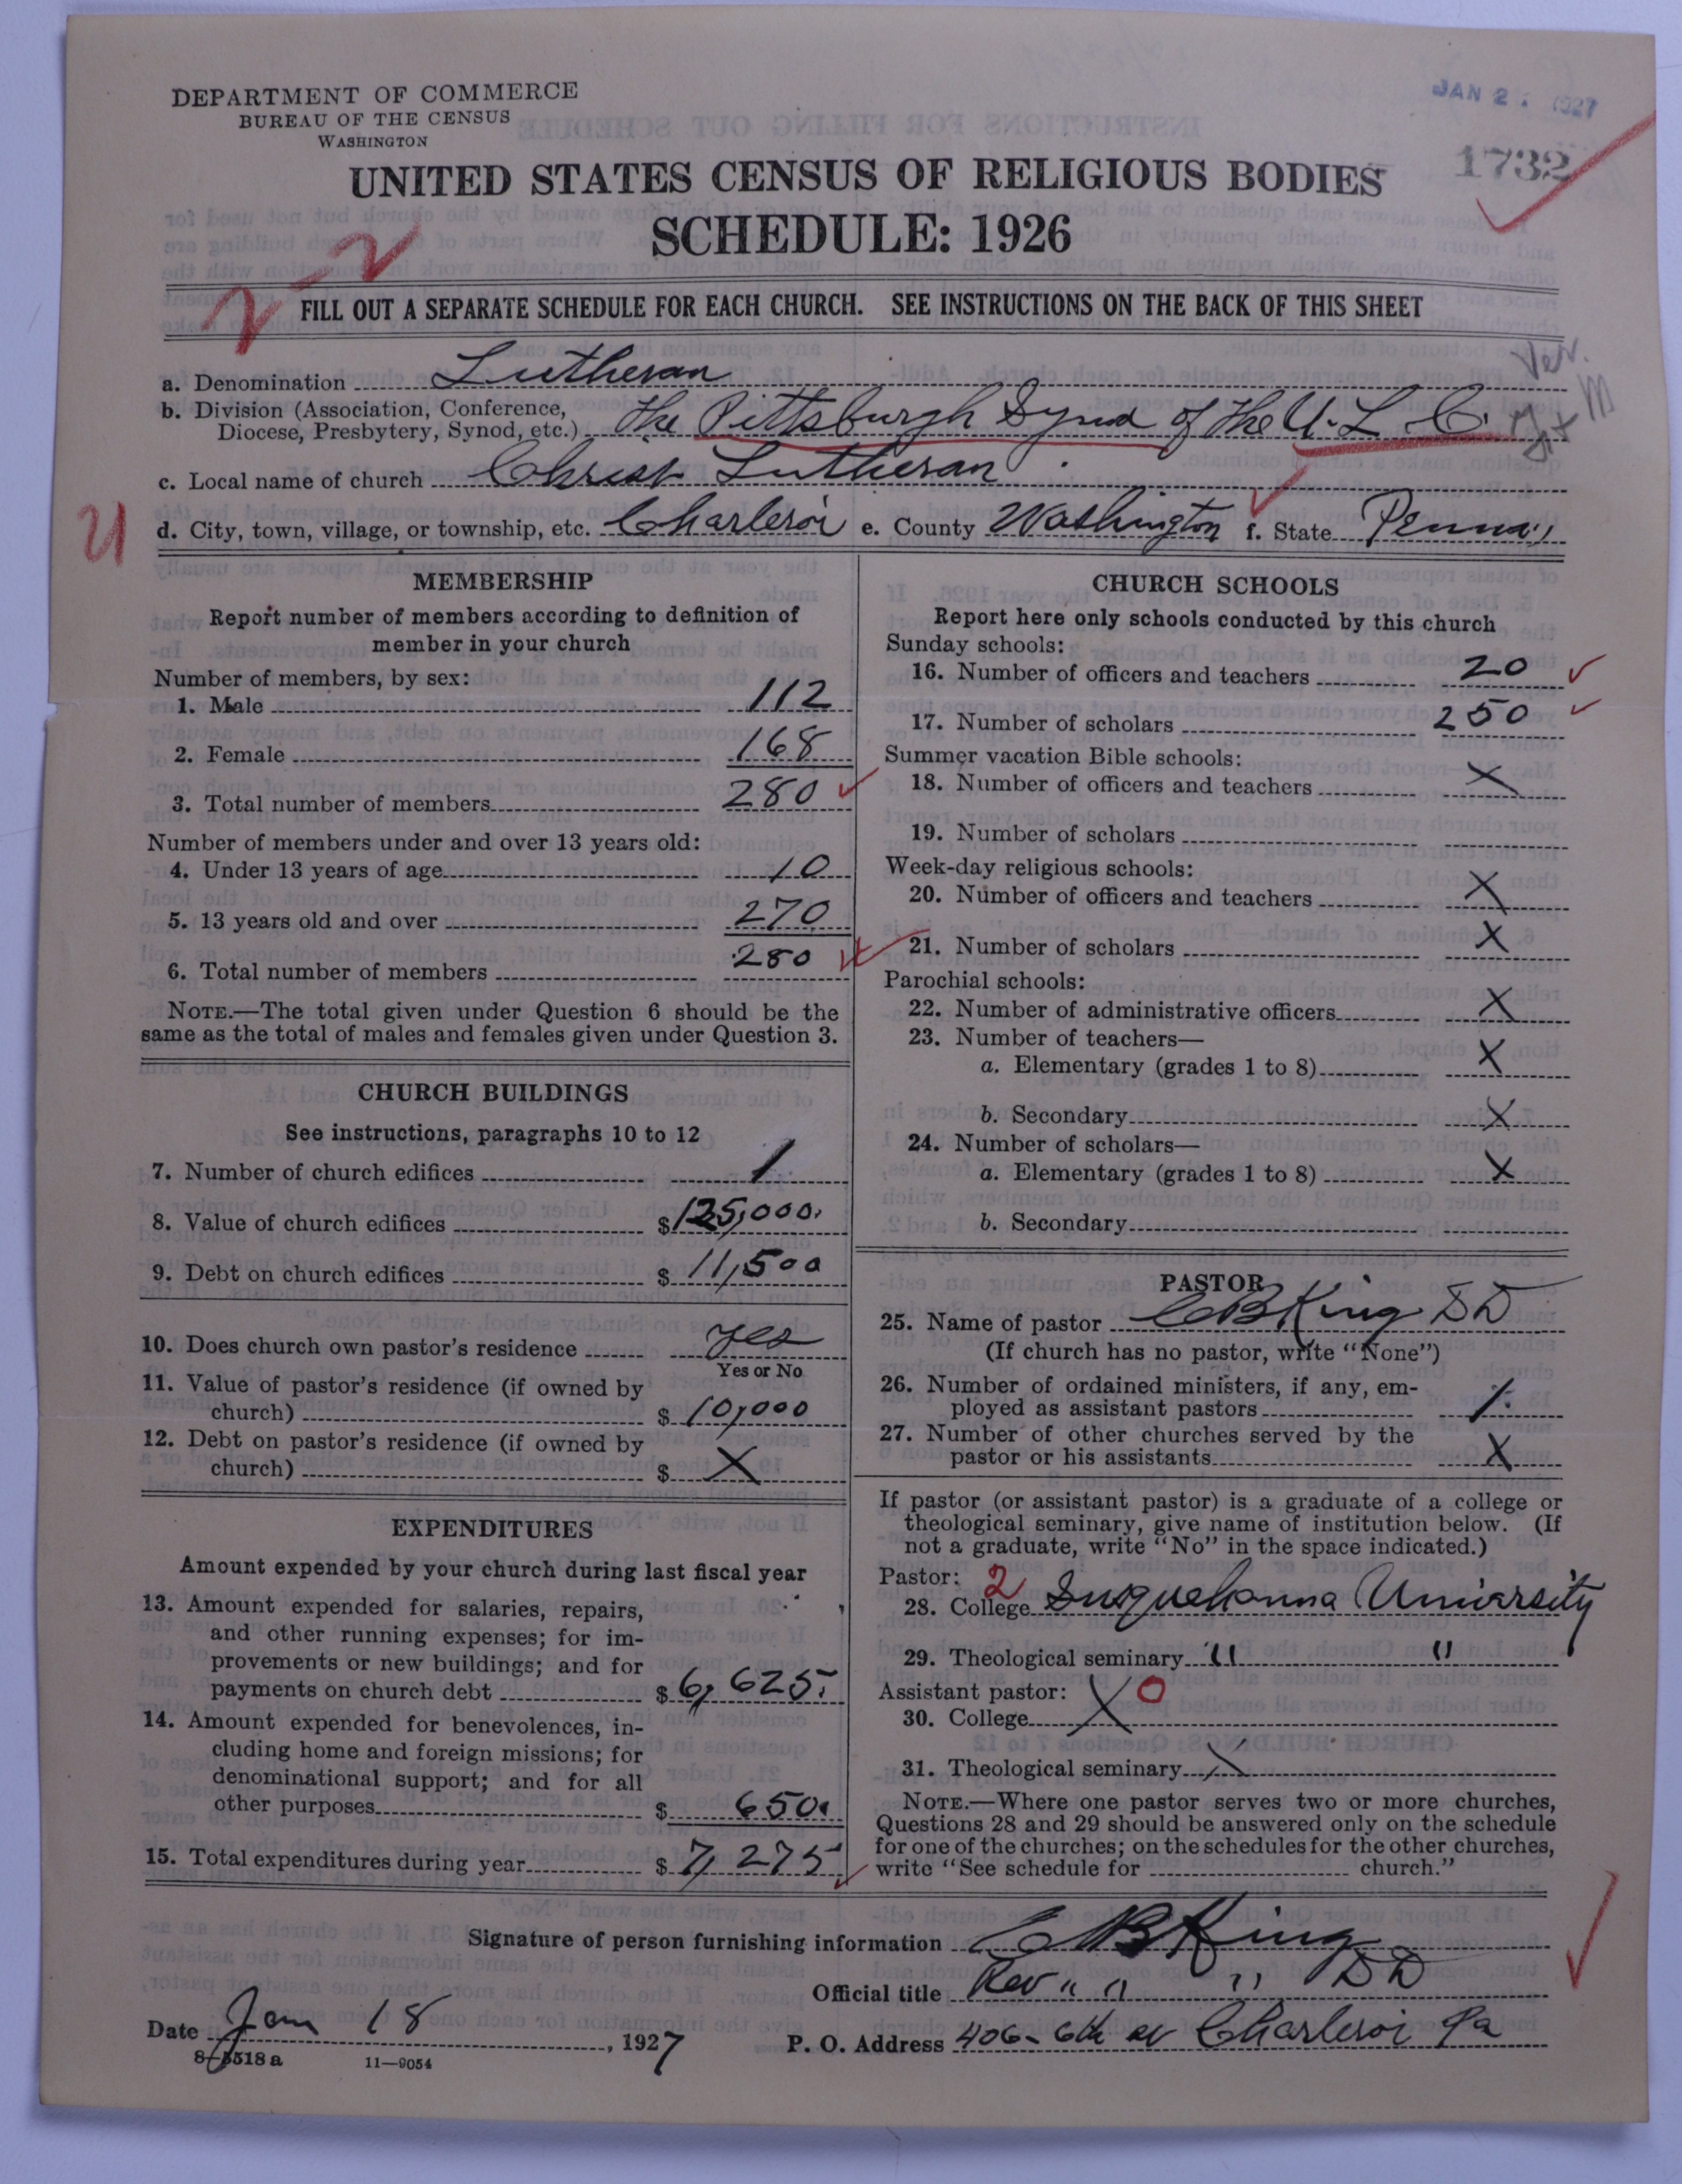 DEPARTMENT OF COMMERCE
BUREAU OF THE CENSUS
WASHINGTON
JAN 2 1927
1732
UNITED STATES CENSUS OF RELIGIOUS BODIES
SCHEDULE: 1926
2-2
FILL OUT A SEPARATE SCHEDULE FOR EACH CHURCH. SEE INSTRUCTIONS ON THE BACK OF THIS SHEET
a. Denomination Lutheran
b. Division (Association, Conference,
Diocese, Presbytery, Synod, etc.) The Pittsburgh Synod of the U.L.C.
c. Local name of church Christ Lutheran
d. City, town, village, or township, etc. Charleroi e. County Washington f. State Penna.
MEMBERSHIP
Report number of members according to definition of
member in your church
Number of members, by sex:
1. Male 112
2. Female 168
3. Total number of members 280
Number of members under and over 13 years old:
4. Under 13 years of age 10
5. 13 years old and over 270
6. Total number of members 280
NOTE.—The total given under Question 6 should be the
same as the total of males and females given under Question 3.
CHURCH BUILDINGS
See instructions, paragraphs 10 to 12
7. Number of church edifices 1
8. Value of church edifices $125,000.
9. Debt on church edifices $11,500
10. Does church own pastor's residence yes
Yes or No
11. Value of pastor's residence (if owned by
church) $10,000
12. Debt on pastor's residence (if owned by
church) $ X
EXPENDITURES
Amount expended by your church during last fiscal year
13. Amount expended for salaries, repairs,
and other running expenses; for im-
provements or new buildings; and for
payments on church debt $6,625.
14. Amount expended for benevolences, in-
cluding home and foreign missions; for
denominational support; and for all
other purposes $650.
15. Total expenditures during year $7,275
CHURCH SCHOOLS
Report here only schools conducted by this church
Sunday schools:
16. Number of officers and teachers 20
17. Number of scholars 250
Summer vacation Bible schools:
18. Number of officers and teachers X
19. Number of scholars
Week-day religious schools:
20. Number of officers and teachers X
21. Number of scholars X
Parochial schools:
22. Number of administrative officers X
23. Number of teachers—
a. Elementary (grades 1 to 8) X
b. Secondary X
24. Number of scholars—
a. Elementary (grades 1 to 8) X
b. Secondary
PASTOR
25. Name of pastor C B King D D
(If church has no pastor, write "None")
26. Number of ordained ministers, if any, em-
ployed as assistant pastors 1.
27. Number of other churches served by the
pastor or his assistants X
If pastor (or assistant pastor) is a graduate of a college or
theological seminary, give name of institution below. (If
not a graduate, write "No" in the space indicated.)
Pastor: 2
28. College Susquehanna University
29. Theological seminary " "
Assistant pastor: 0
30. College X
31. Theological seminary X
NOTE.—Where one pastor serves two or more churches,
Questions 28 and 29 should be answered only on the schedule
for one of the churches; on the schedules for the other churches,
write "See schedule for church."
Signature of person furnishing information C B King
Official title Rev " " " D D
Date Jan 18, 1927 P. O. Address 406-6th av Charleroi Pa
8-5518 a 11-9054